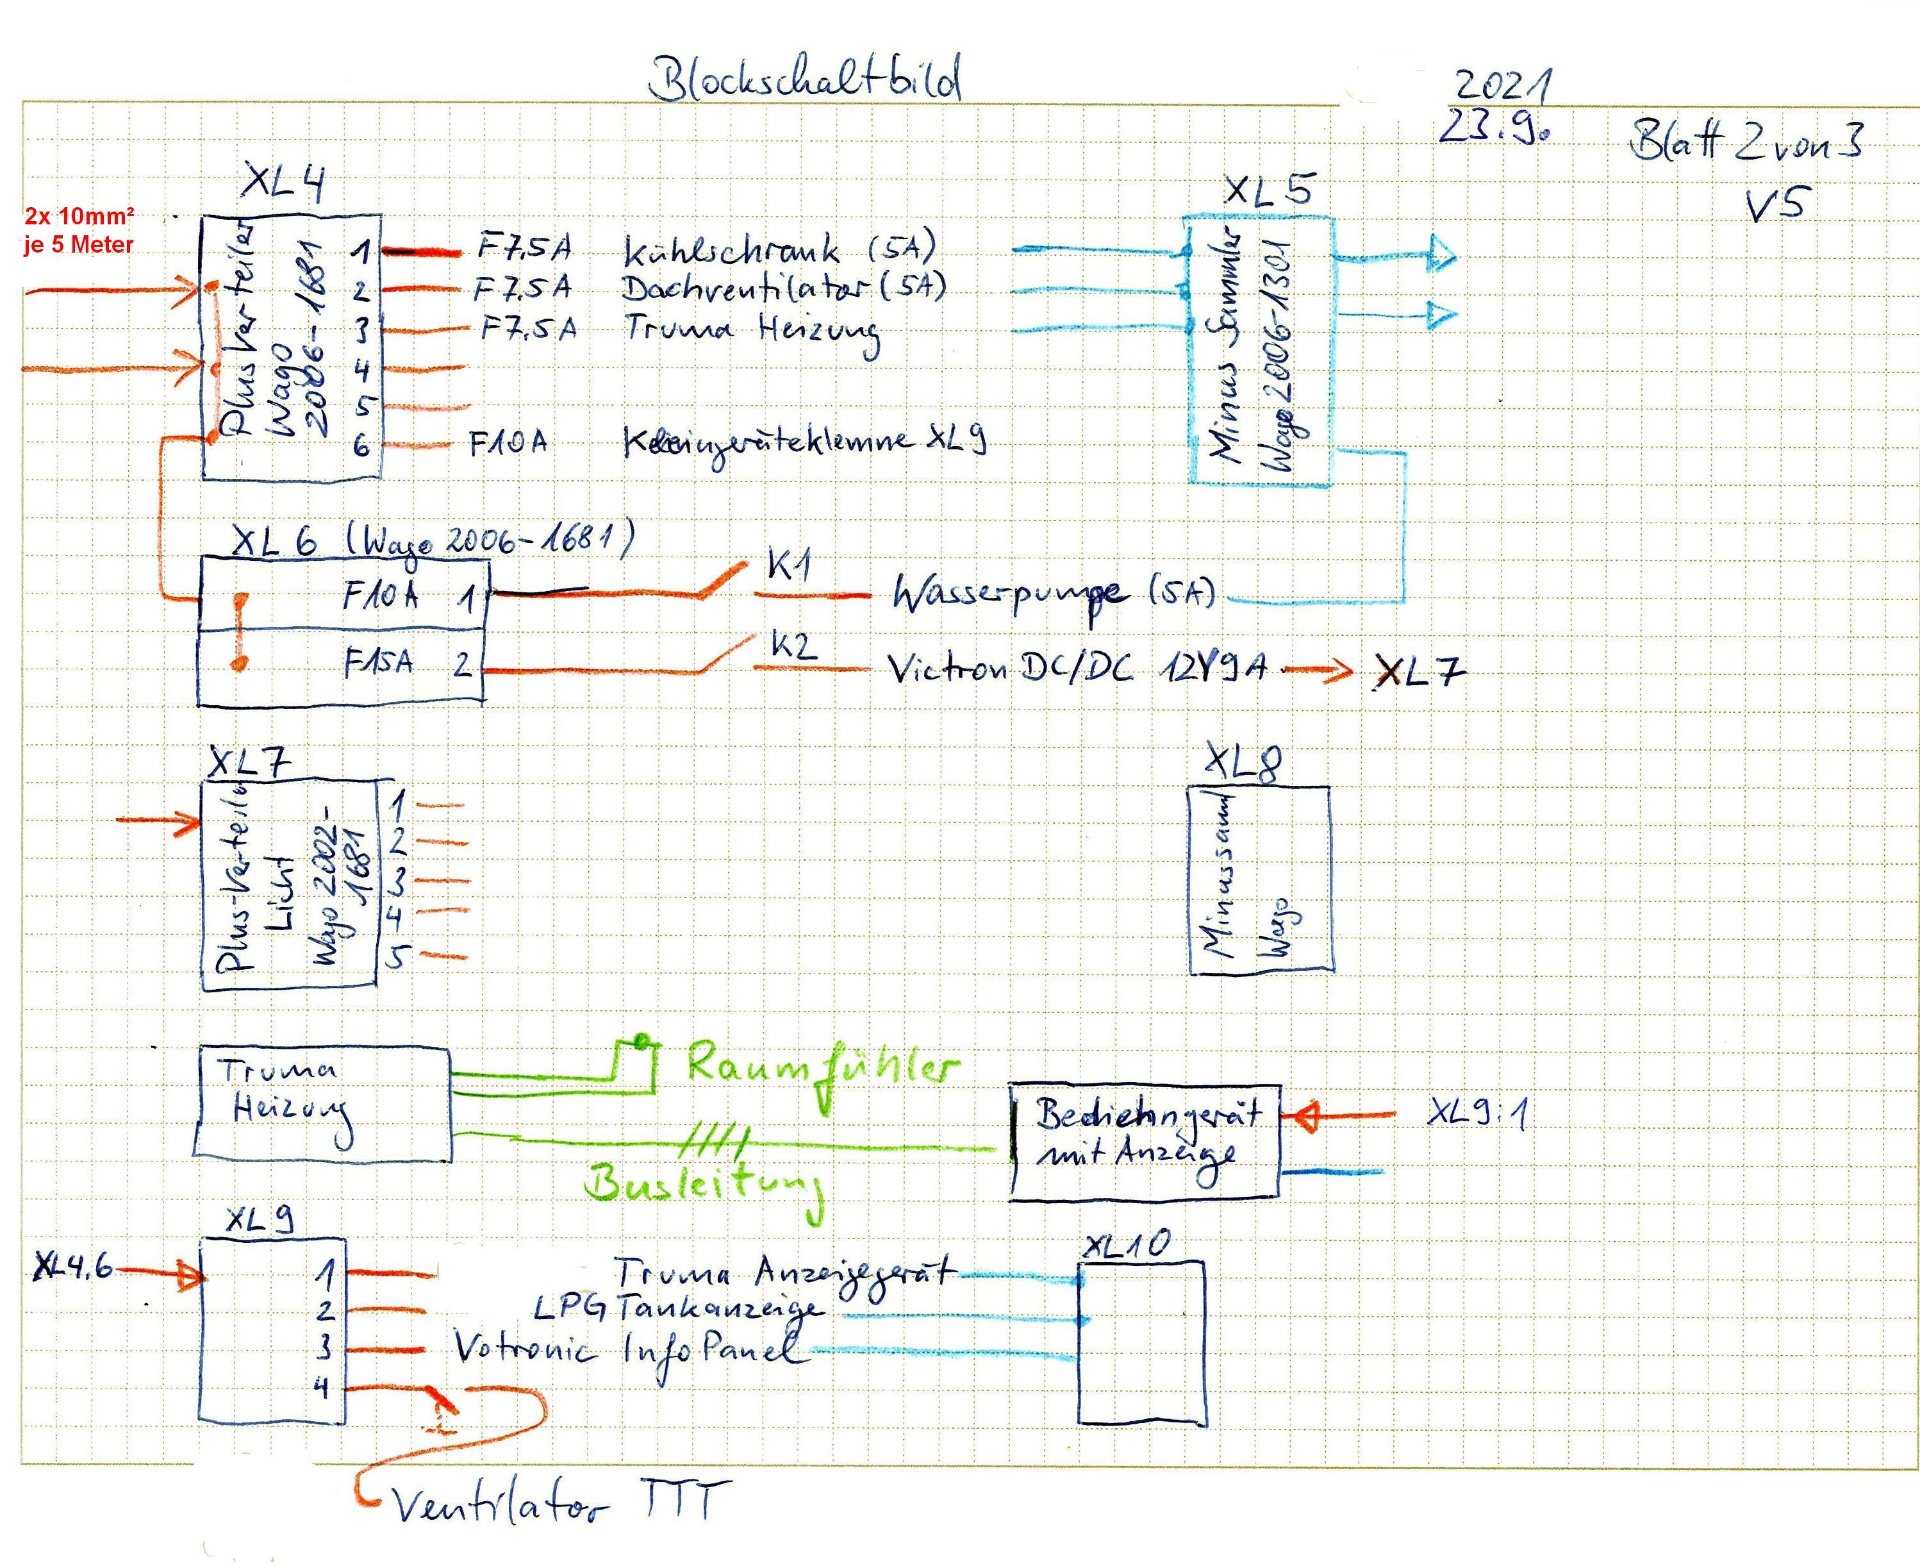 Blockschaltbild
2021
23.9.
Blatt 2 von 3
V5
XL4
2x 10mm²
je 5 Meter
Plus Verteiler
Wago
2006-1681
1 F7.5A Kühlschrank (5A)
2 F7.5A Dachventilator (5A)
3 F7.5A Truma Heizung
4
5
6 F10A Kleingeräteklemme XL9
XL5
Minus Sammler
Wago 2006-1301
XL6 (Wago 2006-1681)
F10A 1 K1 Wasserpumpe (5A)
F15A 2 K2 Victron DC/DC 12V9A XL7
XL7
Plus-Verteiler
Licht
Wago 2002-
1681
1
2
3
4
5
XL8
Minussaml
Wago
Truma
Heizung
Raumfühler
Busleitung
Bediehngerät
mit Anzeige
XL9:1
XL9
XL4.6
1 Truma Anzeigegerät
2 LPG Tankanzeige
3 Votronic InfoPanel
4
XL10
Ventilator TTT